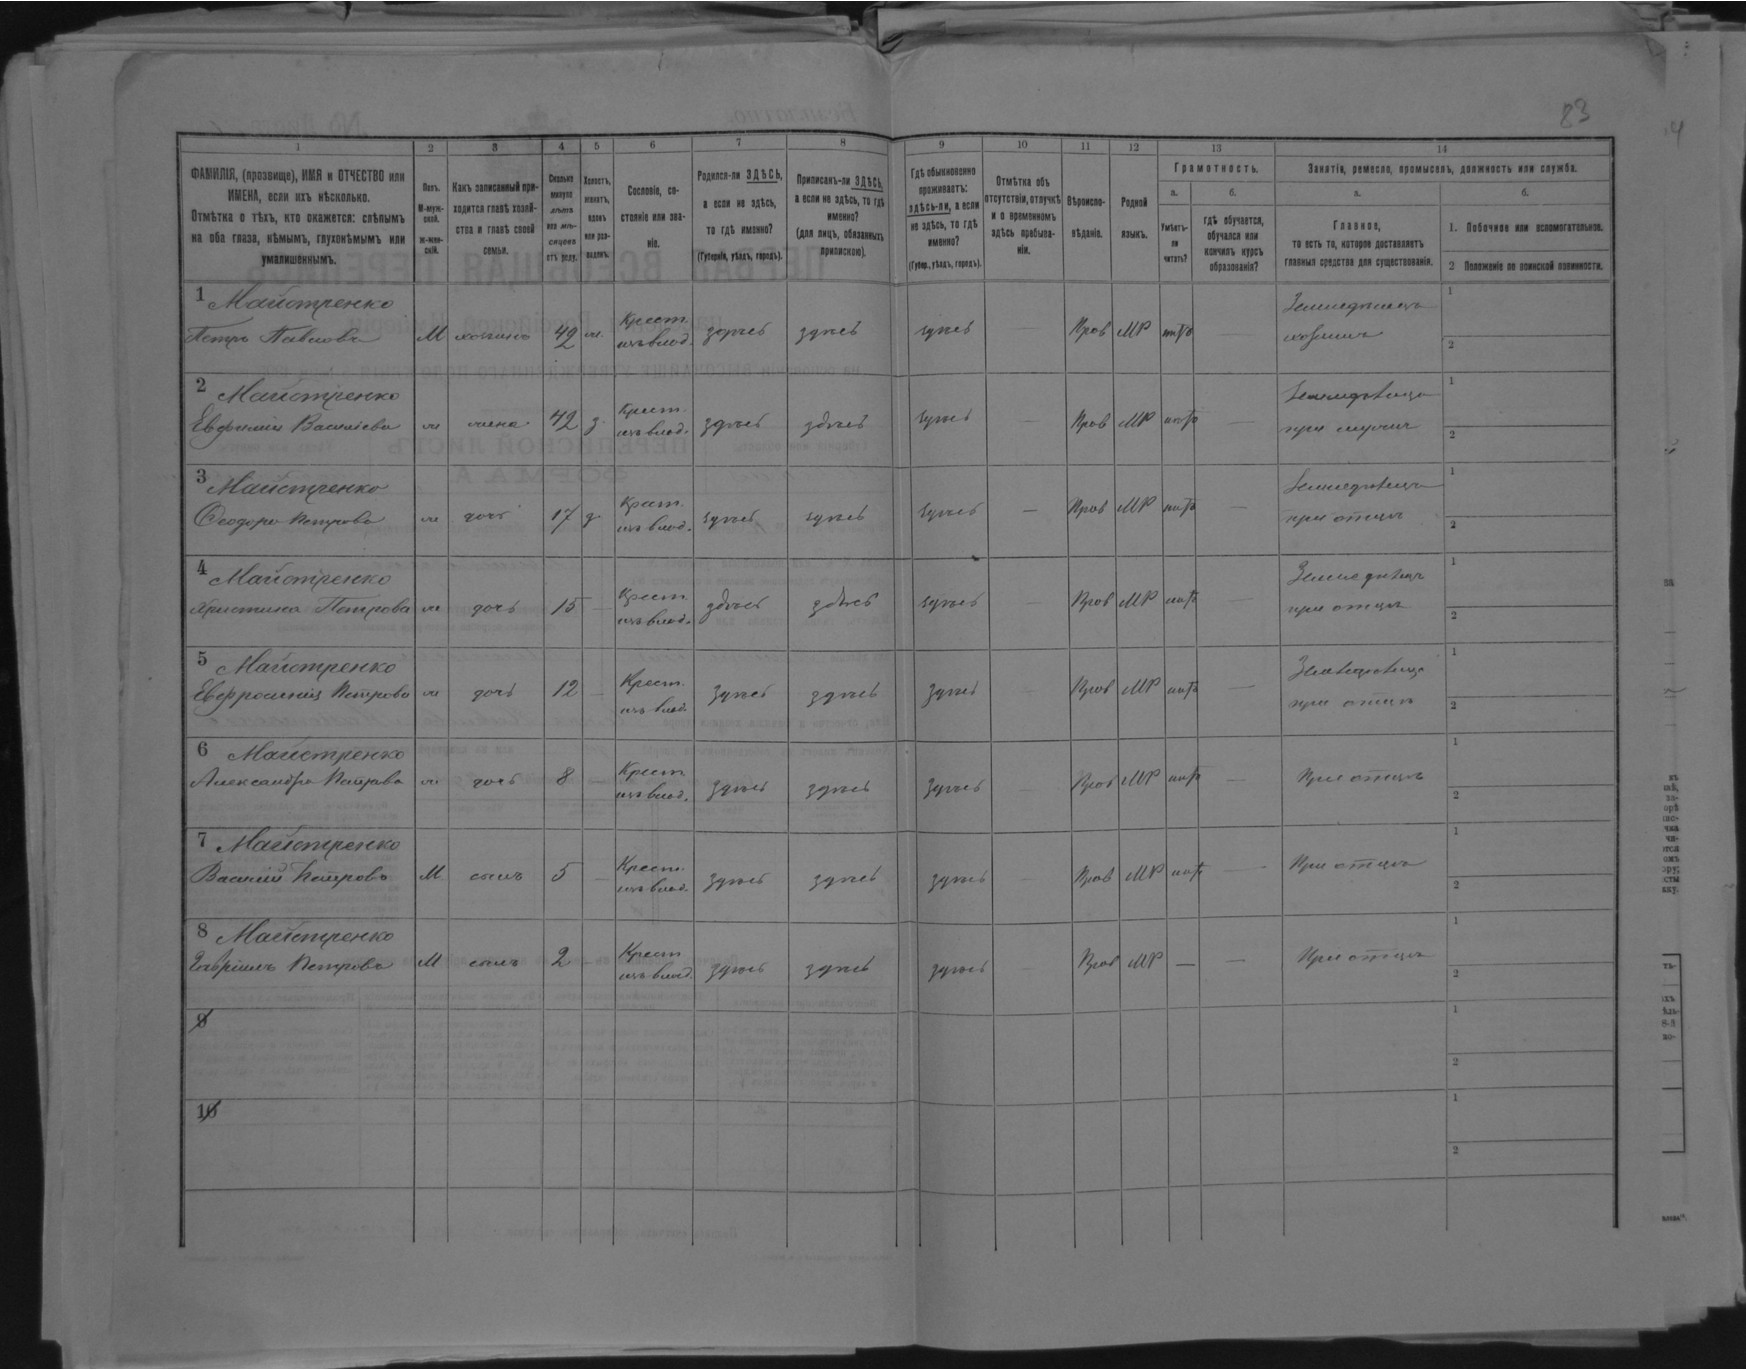 83
1 2 3 4 5 6 7 8 9 10 11 12 13 14
ФАМИЛІЯ, (прозвище), ИМЯ и ОТЧЕСТВО или
ИМЕНА, если ихъ нѣсколько.
Отмѣтка о тѣхъ, кто окажется: слѣпымъ
на оба глаза, нѣмымъ, глухонѣмымъ или
умалишеннымъ.
Полъ.
М-муж-
ской.
Ж-жен-
скій.
Какъ записанный при-
ходится главѣ хозяй-
ства и главѣ своей
семьи.
Сколько
минуло
лѣтъ
или мѣ-
сяцевъ
отъ роду.
Холостъ,
женатъ,
вдовъ
или раз-
веденъ.
Сословіе, со-
стояніе или зва-
ніе.
Родился-ли ЗДѢСЬ,
а если не здѣсь,
то гдѣ именно?
(Губернія, уѣздъ, городъ).
Приписанъ-ли ЗДѢСЬ,
а если не здѣсь, то гдѣ
именно?
(для лицъ, обязанныхъ
припискою).
Гдѣ обыкновенно
проживаетъ:
здѣсь-ли, а если
не здѣсь, то гдѣ
именно?
(Губер., уѣздъ, городъ).
Отмѣтка объ
отсутствіи, отлучкѣ
и о временномъ
здѣсь пребыва-
ніи.
Вѣроиспо-
вѣданіе.
Родной
языкъ.
Грамотность.
а.
Умѣетъ-
ли
читать?
б.
гдѣ обучается,
обучался или
кончилъ курсъ
образованія?
Занятія, ремесло, промыселъ, должность или служба.
а.
Главное,
то есть то, которое доставляетъ
главныя средства для существованія.
б.
1. Побочное или вспомогательное.
2 Положеніе по воинской повинности.
1 Майстренко Крест. Земледѣлецъ 1
Петръ Павловъ М хозяинъ 42 ж. изъ влад. здѣсь здѣсь здѣсь — Прав МР нѣтъ — хозяинъ 2
2 Майстренко Крест. Земледѣлица 1
Евфимія Васильева ж жена 42 з. изъ влад. здѣсь здѣсь здѣсь — Прав МР нѣтъ — при мужѣ 2
3 Майстренко Крест. Земледѣлица 1
Ѳеодора Петрова ж дочь 17 д. изъ влад. здѣсь здѣсь здѣсь — Прав МР нѣтъ — при отцѣ 2
4 Майстренко Крест. Земледѣлица 1
Христина Петрова ж дочь 15 — изъ влад. здѣсь здѣсь здѣсь — Прав МР нѣтъ — при отцѣ 2
5 Майстренко Крест. Земледѣлица 1
Евфросинія Петрова ж дочь 12 — изъ влад. здѣсь здѣсь здѣсь — Прав МР нѣтъ — при отцѣ 2
6 Майстренко Крест. 1
Александра Петрова ж дочь 8 — изъ влад. здѣсь здѣсь здѣсь — Прав МР нѣтъ — При отцѣ 2
7 Майстренко Крест. 1
Василій Петровъ М сынъ 5 — изъ влад. здѣсь здѣсь здѣсь — Прав МР нѣтъ — При отцѣ 2
8 Майстренко Крест. 1
Гавріилъ Петровъ М сынъ 2 — изъ влад. здѣсь здѣсь здѣсь — Прав МР — — При отцѣ 2
9 1
2
10 1
2